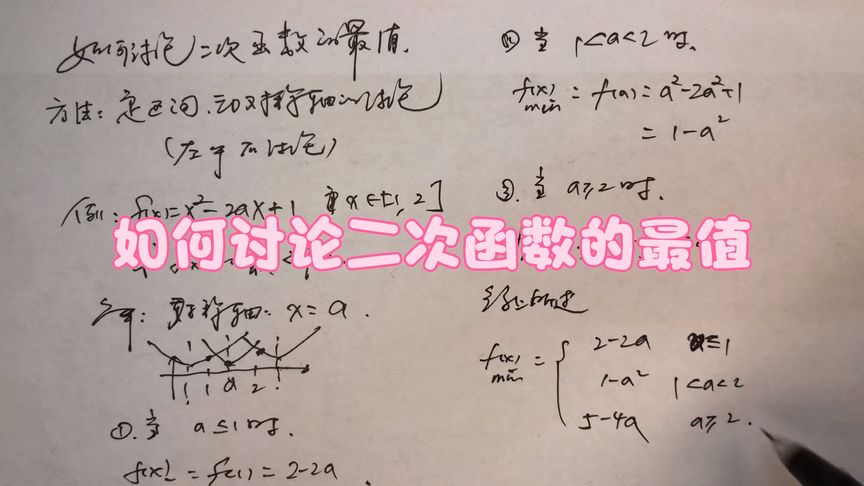 如何讨论二次函数的最值.
方法: 定区间,动对称轴的讨论
(左中右讨论)
例: f(x)=x²-2ax+1 当x∈[1,2]
如何讨论二次函数的最值
对称轴: x=a.
1 a 2
①. 当 a≤1时.
f(x) = f(1) = 2-2a.
② 当 1<a<2时.
f(x)min = f(a) = a²-2a²+1
= 1-a²
③. 当 a≥2时.
综上所述
f(x)min = { 2-2a a≤1
1-a² 1<a<2
5-4a a≥2.